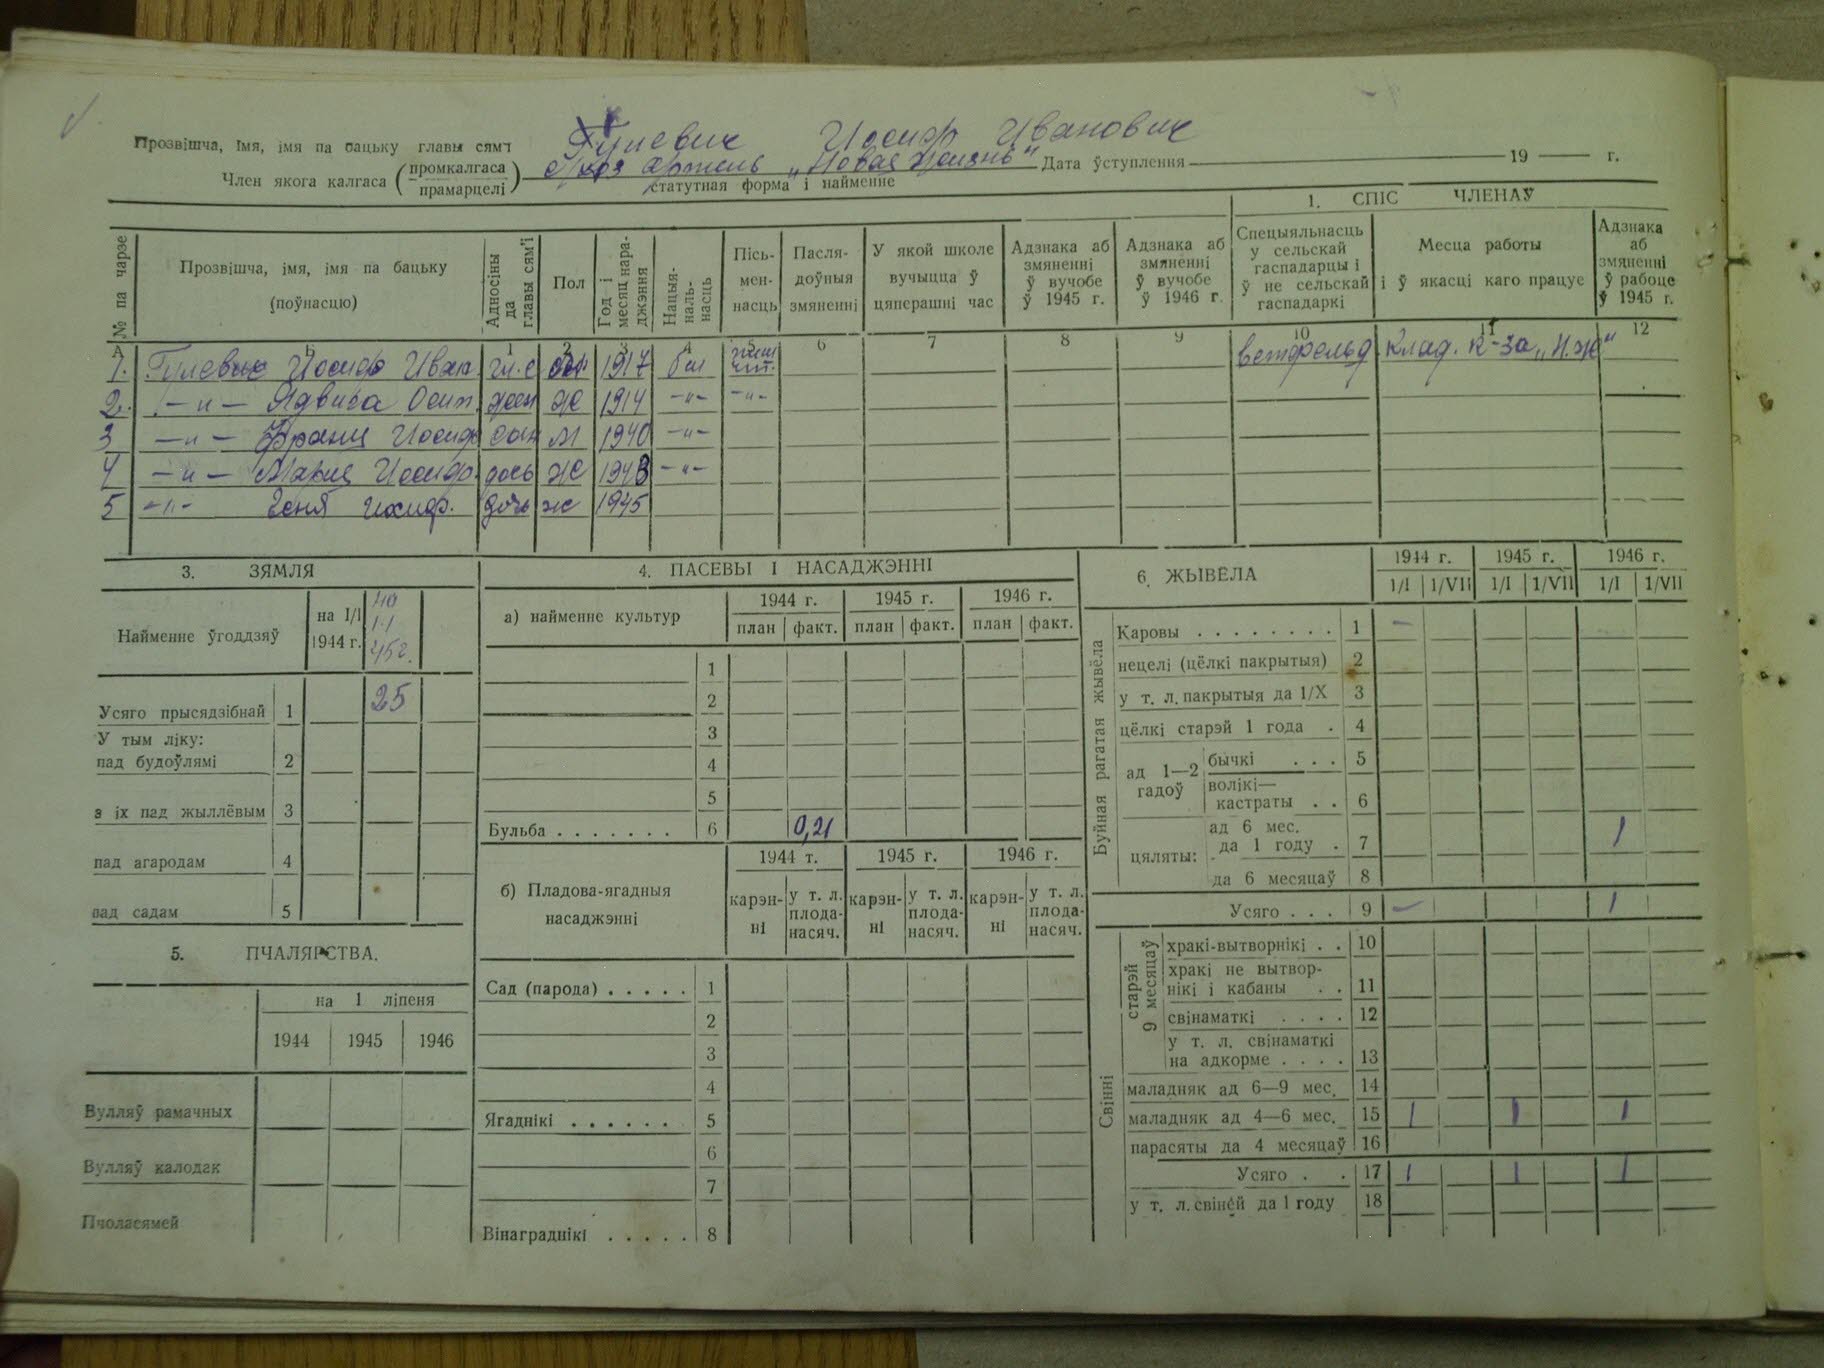 Прозвішча, імя, імя па бацьку главы сям'і Гулевич Иосиф Иванович
Член якога калгаса (промкалгаса прамарцелі) с/хоз артель „Новая Жизнь" Дата ўступлення 19 г.
статутная форма і найменне
1. СПІС ЧЛЕНАЎ
№ па чарзе
Прозвішча, імя, імя па бацьку (поўнасцю)
Адносіны да главы сям'і
Пол
Год і месяц нараджэння
Нацыянальнасць
Пісьменнасць
Паслядоўныя змяненні
У якой школе вучыцца ў цяперашні час
Адзнака аб змяненні ў вучобе ў 1945 г.
Адзнака аб змяненні ў вучобе ў 1946 г.
Спецыяльнасць у сельскай гаспадарцы і ў не сельскай гаспадаркі
Месца работы і ў якасці каго працуе
Адзнака аб змяненні ў рабоце ў 1945 г.
А Б 1 2 3 4 5 6 7 8 9 10 11 12
1. Гулевич Иосиф Иван гл. с 1917 бел ветфельд. Клад. к-за „Н.Ж"
2. —"— Ядвига Осип. жен ж 1914 -"- -"-
3 —"— Франц Иосиф сын м 1940 -"-
4 —"— Мария Иосиф. дочь ж 1943 -"-
5 -"- Геня Иосиф. дочь ж 1945
3. ЗЯМЛЯ
Найменне ўгоддзяў на I/I 1944 г. на 1.1 45г.
Усяго прысядзібнай 1 25
У тым ліку:
пад будоўлямі 2
з іх пад жыллёвым 3
пад агародам 4
пад садам 5
5. ПЧАЛЯРСТВА.
на 1 ліпеня
1944 1945 1946
Вулляў рамачных
Вулляў калодак
Пчоласямей
4. ПАСЕВЫ І НАСАДЖЭННІ
а) найменне культур 1944 г. 1945 г. 1946 г.
план факт. план факт. план факт.
1
2
3
4
5
Бульба . . . . . . . 6 0,21
б) Пладова-ягадныя насаджэнні 1944 г. 1945 г. 1946 г.
карэнні у т. л. пладанасяч. карэнні у т. л. пладанасяч. карэнні у т. л. пладанасяч.
Сад (парода) . . . . . 1
2
3
4
Ягаднікі . . . . . . 5
6
7
Вінаграднікі . . . . . 8
6. ЖЫВЁЛА 1944 г. 1945 г. 1946 г.
1/I 1/VII 1/I 1/VII 1/I 1/VII
Буйная рагатая жывёла
Каровы . . . . . . . . 1 -
нецелі (цёлкі пакрытыя) 2
у т. л. пакрытыя да 1/X 3
цёлкі старэй 1 года . 4
ад 1—2 гадоў
бычкі . . . 5
волікі—кастраты . . 6
цяляты:
ад 6 мес. да 1 году . 7 1
да 6 месяцаў 8
Усяго . . . 9 - 1
Свінні
старэй 9 месяцаў
хракі-вытворнікі . . 10
хракі не вытворнікі і кабаны . . 11
свінаматкі . . . . 12
у т. л. свінаматкі на адкорме . . . . 13
маладняк ад 6—9 мес. 14
маладняк ад 4—6 мес. 15 1 1 1
парасяты да 4 месяцаў 16
Усяго . . 17 1 1 1
у т. л. свіней да 1 году 18